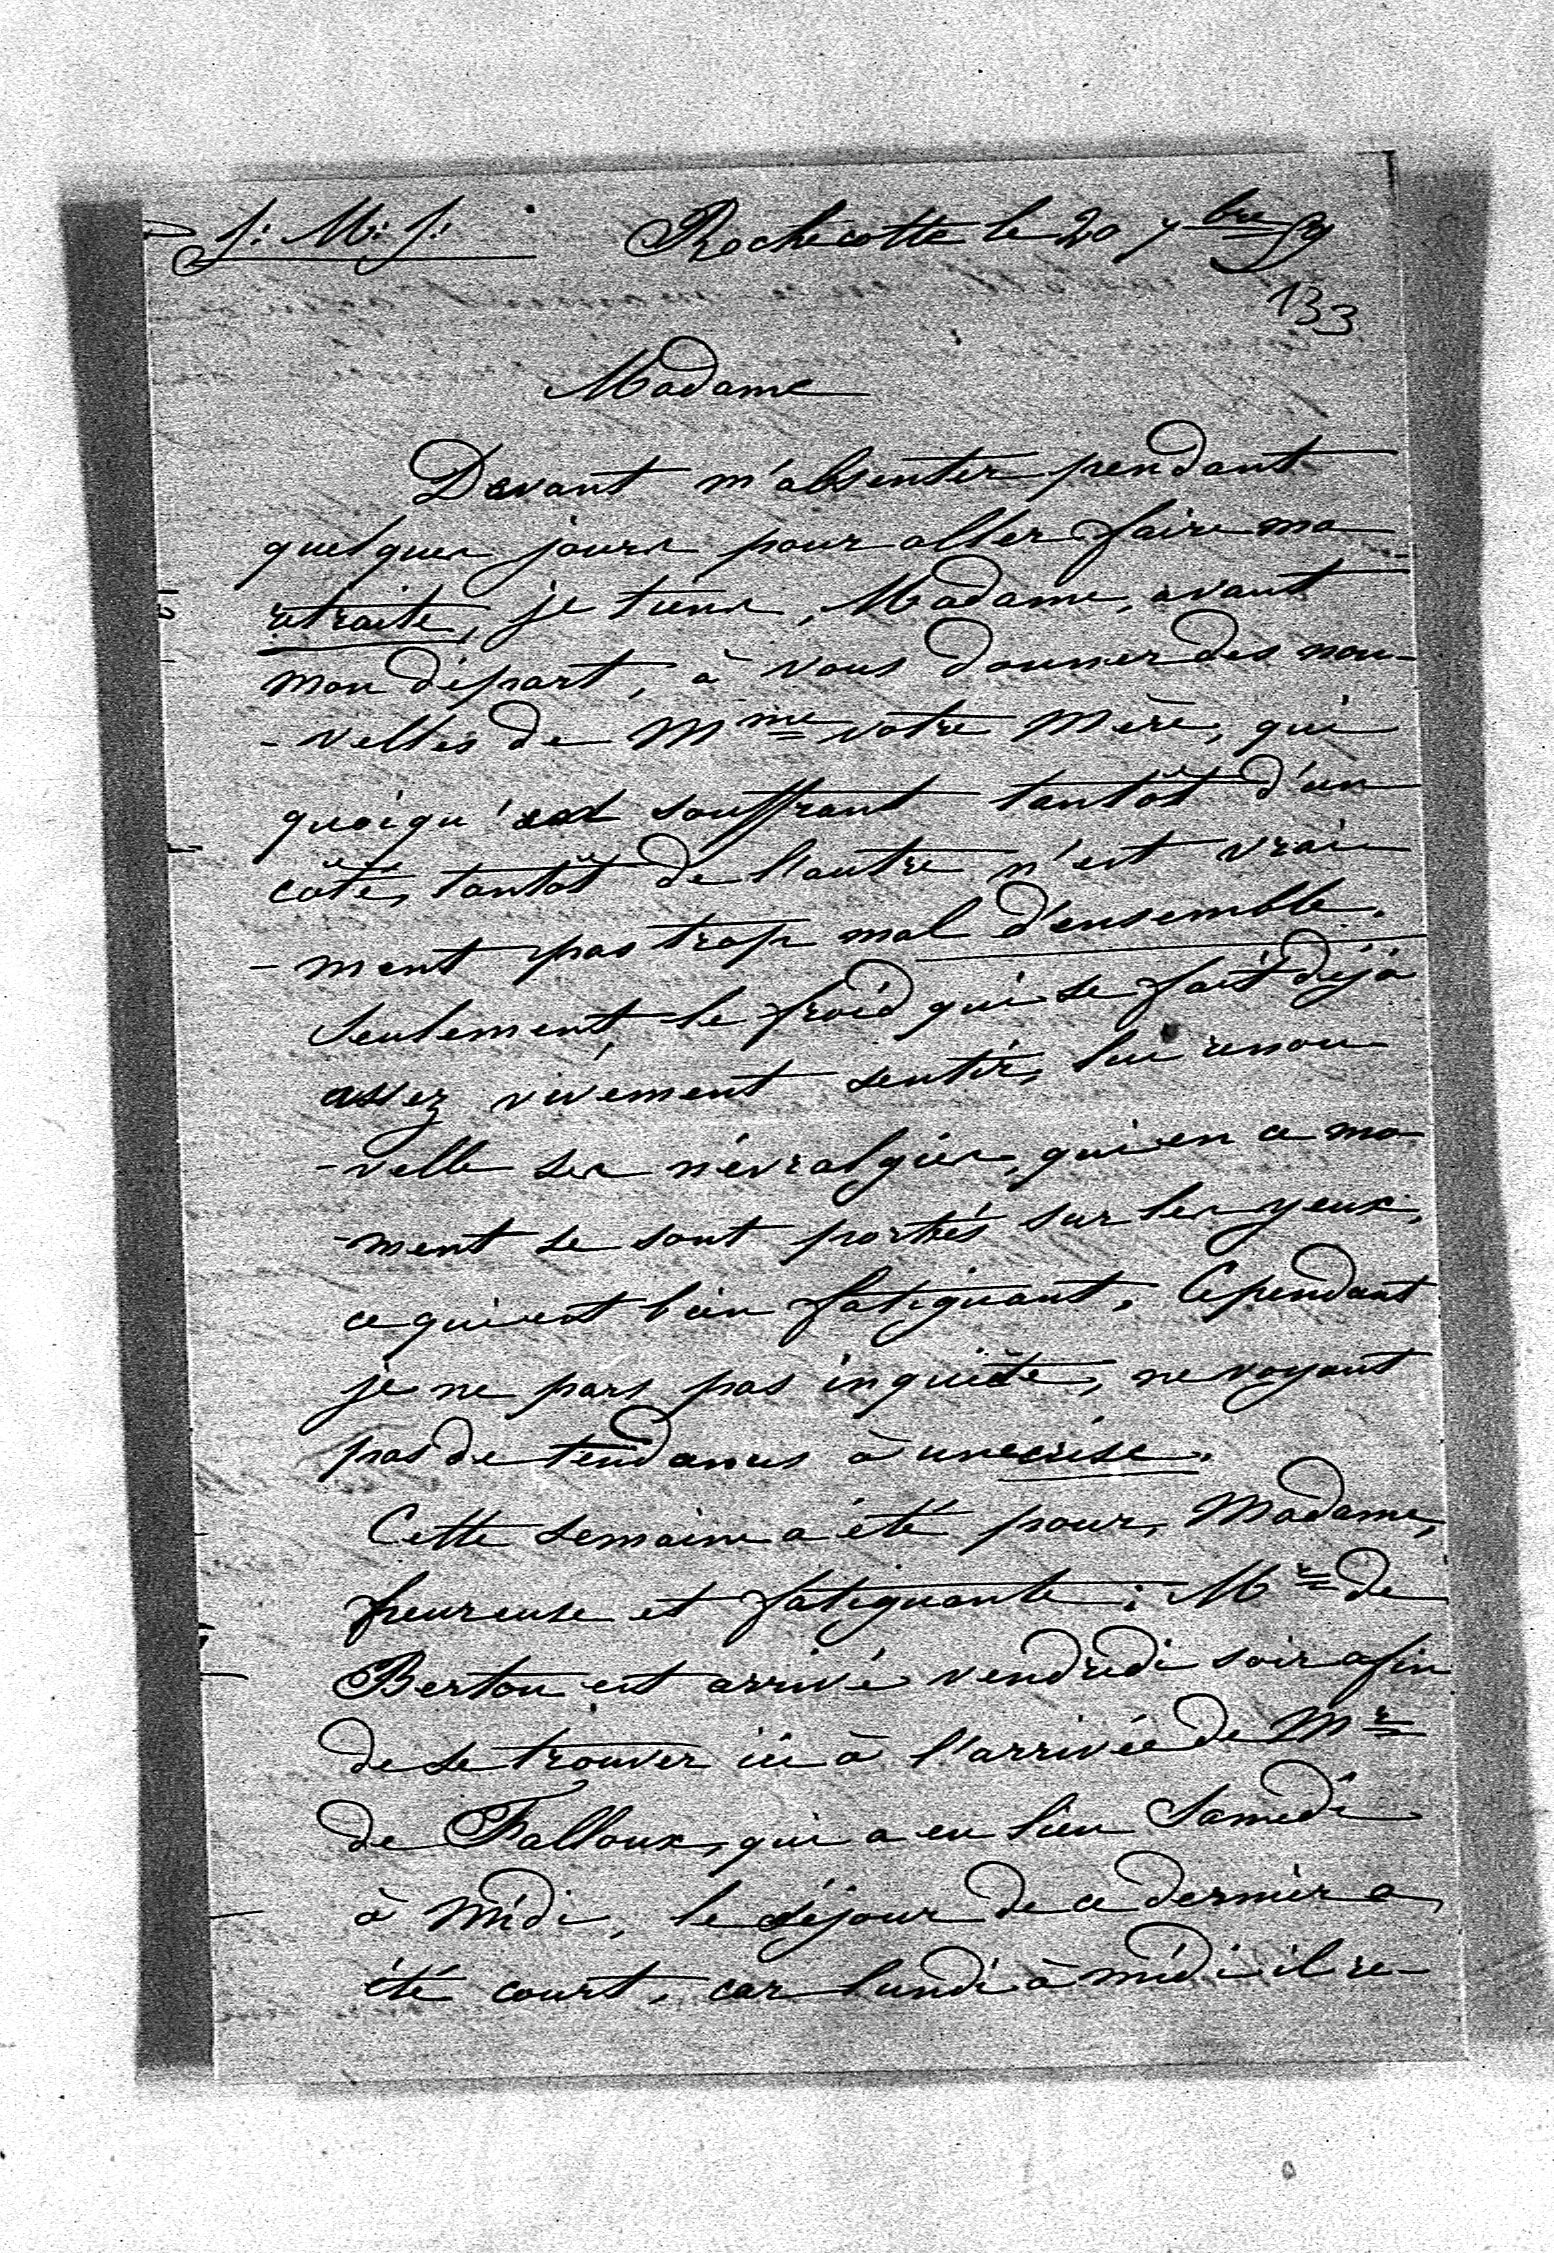 J: M: J: Rochecotte le 20 7bre 59
133
Madame
Devant m'absenter pendant
quelques jours pour aller faire ma
retraite, je tiens, Madame, avant
mon départ, à vous donner des nou-
-velles de Mme votre Mère, qui
quoiqu'est souffrant tantôt d'un
côté, tantôt de l'autre n'est vrai-
-ment pas trop mal d'ensemble.
Seulement, le froid qui se fait déjà
assez vivement sentir, lui renou-
-velle ses névralgies, qui en ce mo-
-ment se sont portés sur les yeux,
ce qui est bien fatiguant. Cependant
je ne pars pas inquiète, ne voyant
pas de tendances à une crise.
Cette semaine a été pour, Madame,
heureuse et fatiguante: Mr de
Berton est arrivé vendredi soir afin
de se trouver ici à l'arrivée de Mr
de Falloux, qui a eu lieu Samedi
à midi, le séjour de ce dernier a
été court, car lundi à midi il re-